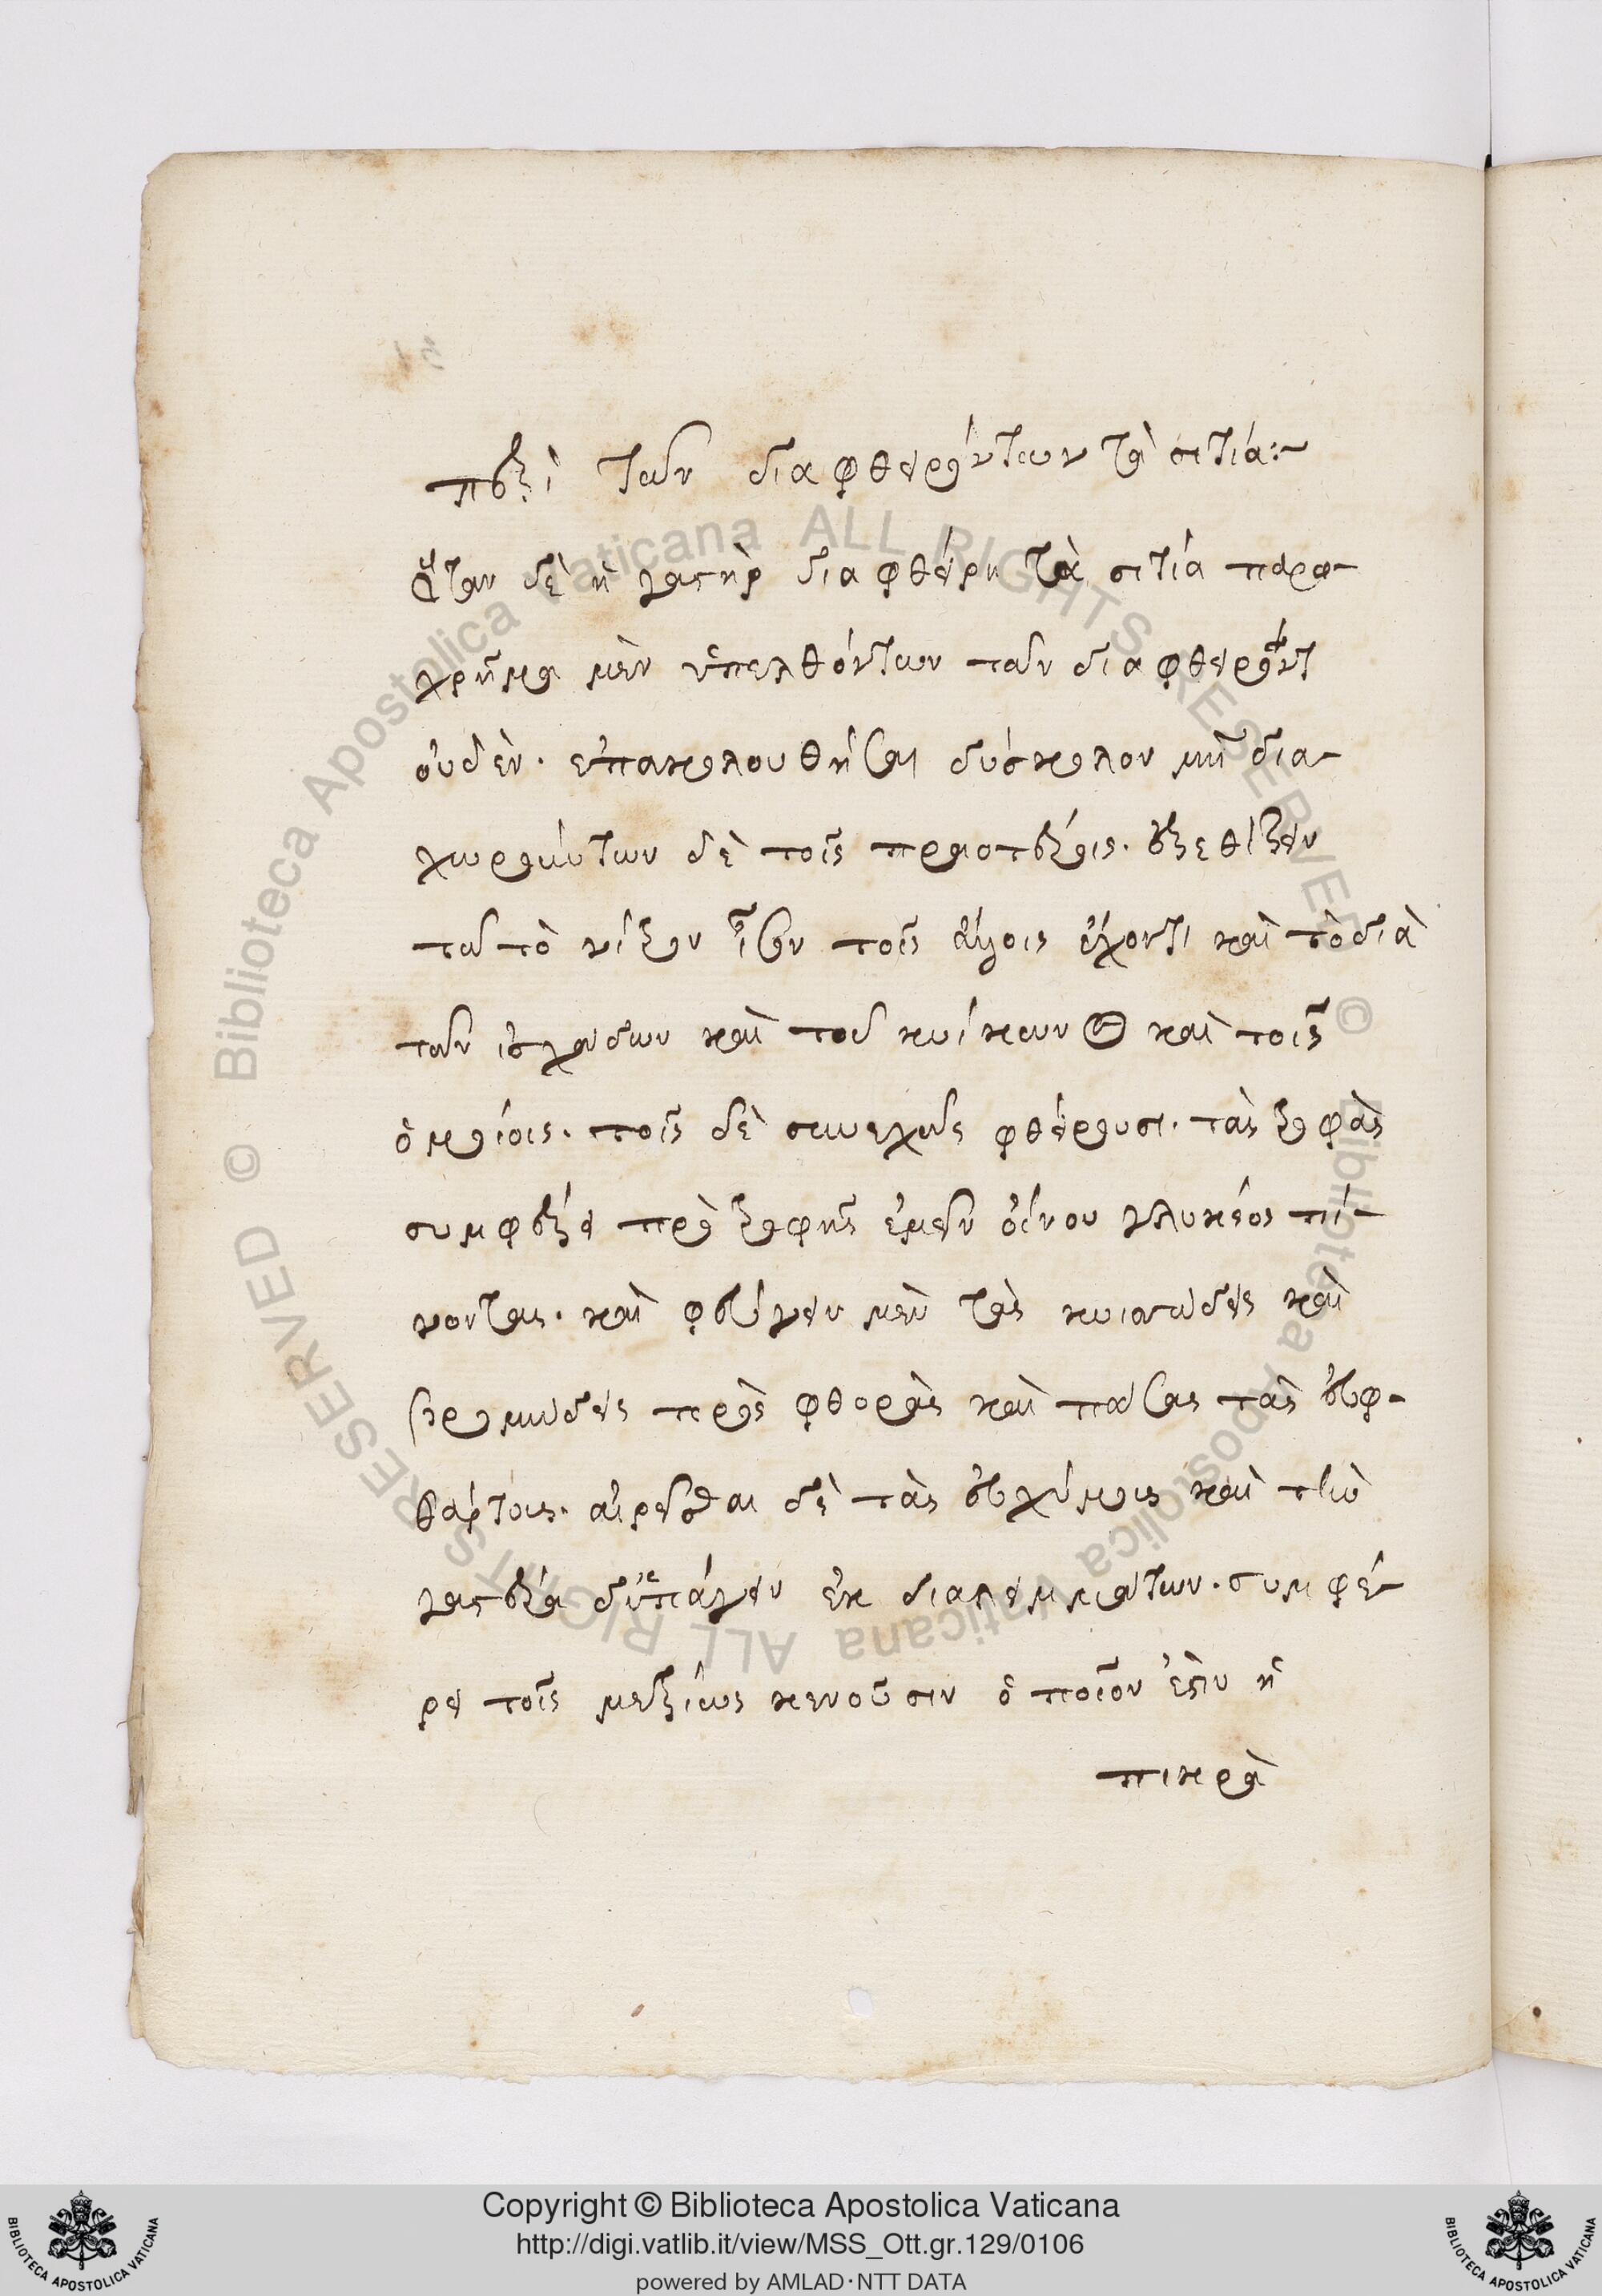 περὶ τῶν διαφθειρόντων τὰ σιτία:~
Ὅταν δὲ ἡ γαστὴρ διαφθείρη τὰ σιτία παρα-
χρῆμα μὲν ὑπελθόντων τῶν διαφθειρόντ
οὐδὲν. ἐπακολουθήσαι δύσκολον μὴ δια-
χωρούντων δὲ τοῖς πραοτέροις. ἐρεθίζειν
τοῖς ἔχοντι καὶ τὸ διὰ
τῶν ἰσχάδων καὶ τοῦ κνίκου καὶ τοῖς
ὁμοίοις. τοῖς δὲ συνεχῶς φθείρουσι. τὰς τροφὰς
συμφέρει πρὸ τροφῆς ἐμεῖν οἴνου γλυκέος πί-
νοντας. καὶ φεύγειν μὲν τὰς κνισώδεις καὶ
βρομώδεις πρὸς φθορὰς καὶ πάσας τὰς εὐφ-
θάρτους. αἱρεῖσθαι δὲ τὰς εὐχύμους καὶ τὴν
γαστέρα δ' ὑπάγειν ἐκ διαλειμμάτων. συμφέ-
ρει τοῖς μετρίως κενοῦσιν ὁποῖον ἐστὶν ἡ
πικρὰ
Copyright © Biblioteca Apostolica Vaticana
http://digi.vatlib.it/view/MSS_Ott.gr.129/0106
powered by AMLAD·NTT DATA
BIBLIOTECA APOSTOLICA VATICANA
BIBLIOTECA APOSTOLICA VATICANA
© Biblioteca Apostolica Vaticana ALL RIGHTS RESERVED
© Biblioteca Apostolica Vaticana ALL RIGHTS RESERVED